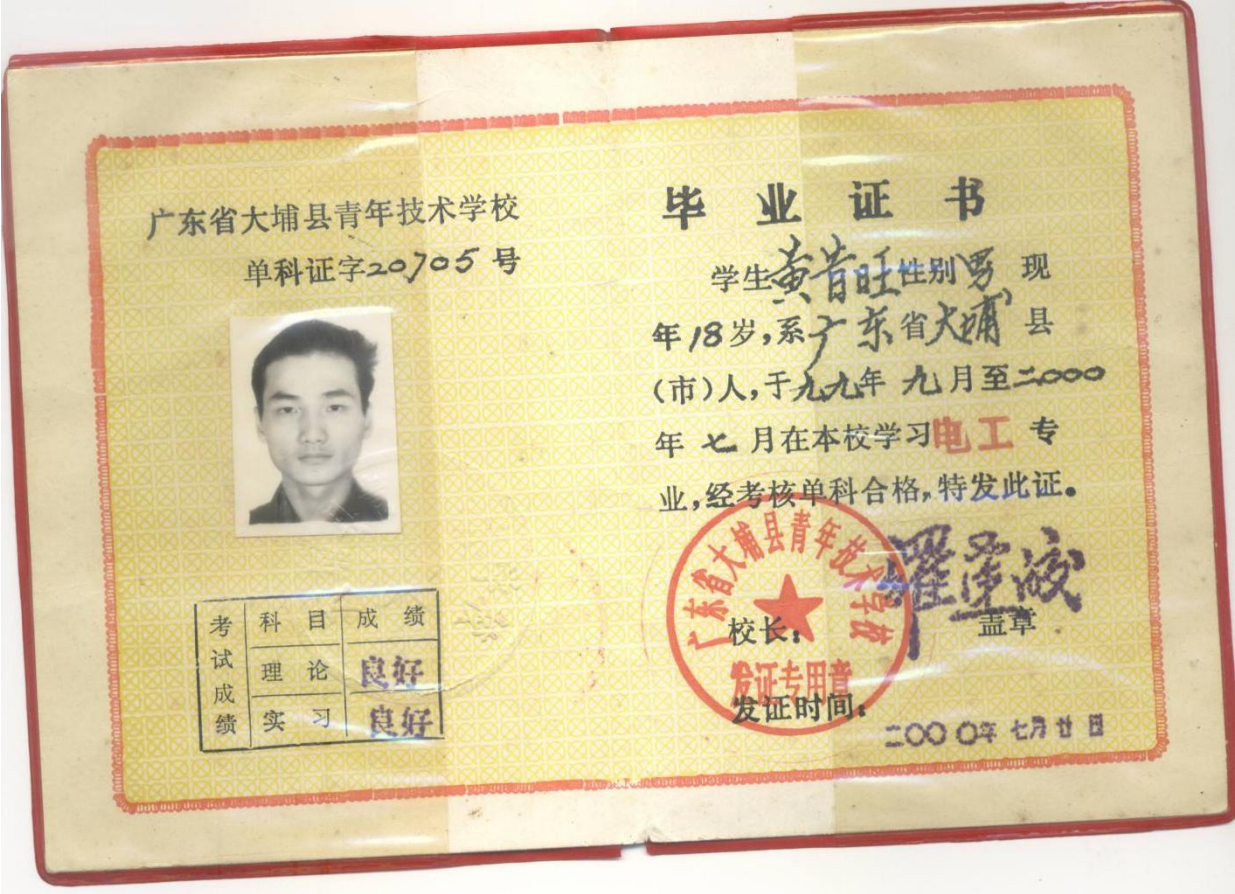 广东省大埔县青年技术学校
单科证字20705号
考试成绩
科目 成绩
理论 良好
实习 良好
毕业证书
学生黄昔旺性别男 现
年18岁,系广东省大埔县
(市)人,于九九年 九月至二〇〇〇
年 七月在本校学习电工专
业,经考核单科合格,特发此证。
广东省大埔县青年技术学校
发证专用章
校长: 盖章
发证时间:
二〇〇〇年七月廿日